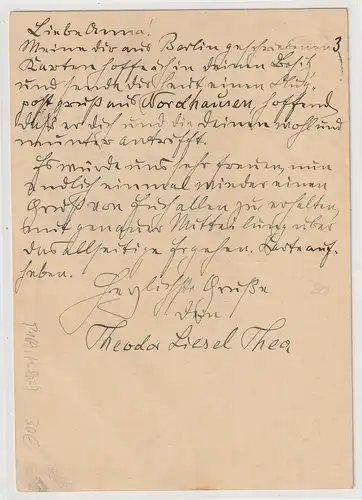 Liebe Anna!
Meine dir aus Berlin geschriebenen 3
Karten hoffe ich in deinem Besitz
und sende dir heut einen Flug-
postgruß aus Nordhausen, hoffend
daß er dich und die deinen wohl und
munter antrifft.
Es würde uns sehr freuen, nun
endlich einmal wieder einen
Gruß von Euch allen zu erhalten,
mit genauer Mitteilung über
das allseitige Ergehen. Karte auf-
heben.
Herzlichste Grüße
dein
Theodor Liesel Thea
30€